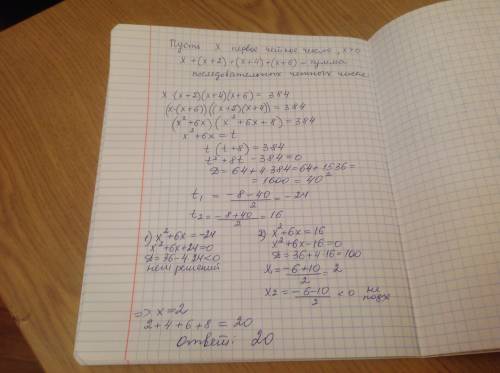 Пусть x первое четное число, x>0
x+(x+2)+(x+4)+(x+6) – сумма
последовательных четных чисел
x·(x+2)(x+4)(x+6)=384
(x·(x+6))((x+2)(x+4))=384
(x²+6x)·(x²+6x+8)=384
x²+6x=t
t(t+8)=384
t²+8t-384=0
D=64+4·384=64+1536=
=1600=40²
t₁=(-8-40)/2=-24
t₂=(-8+40)/2=16
1) x²+6x=-24
x²+6x+24=0
D=36-4·24<0
нет решений
2) x²+6x=16
x²+6x-16=0
D=36+4·16=100
x₁=(-6+10)/2=2
x₂=(-6-10)/2<0 не подх
=> x=2
2+4+6+8=20
Ответ: 20